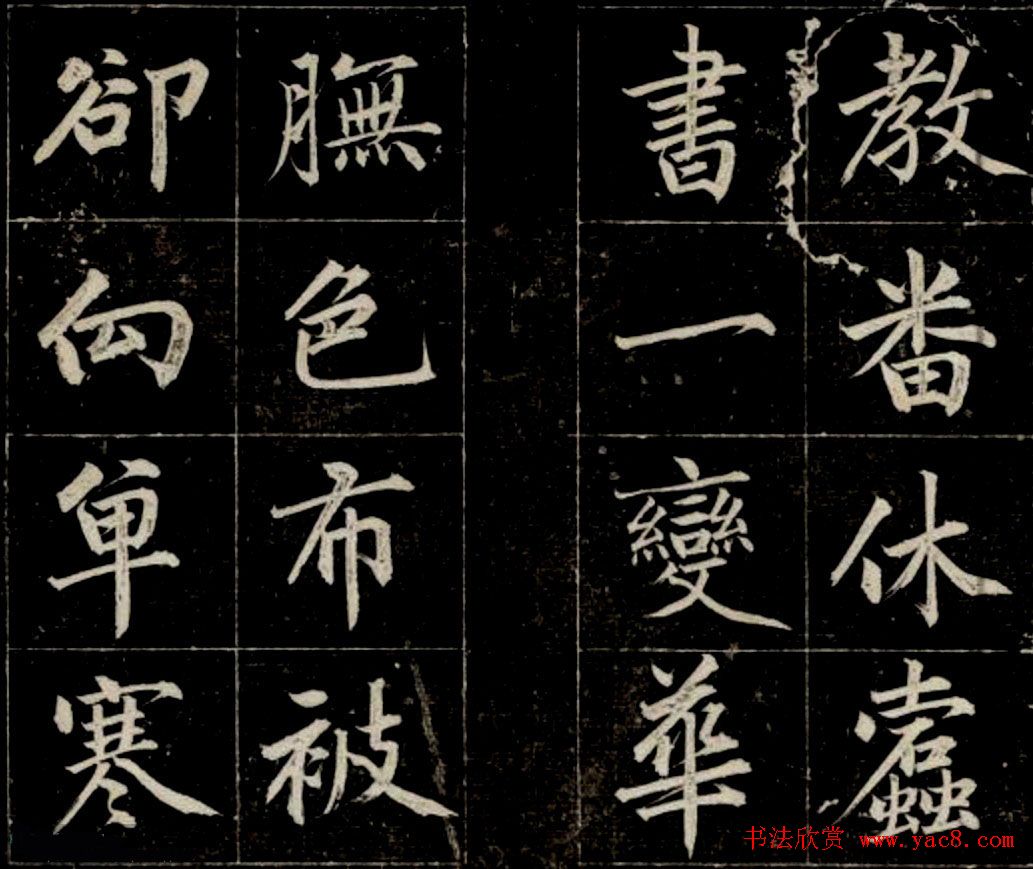 教番休蠹
書一變華
膴色布被
卻向單寒
书法欣赏 www.yac8.com